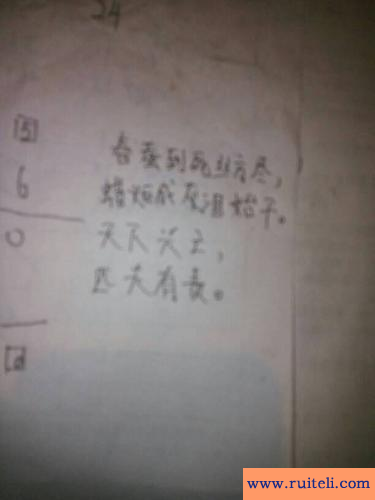 24
15
6
0
春蚕到死丝方尽，
蜡炬成灰泪始干。
天下兴亡，
匹夫有责。
www.ruiteli.com